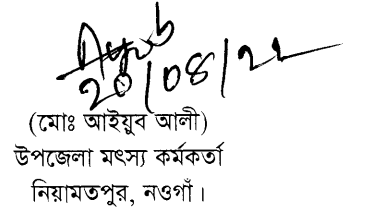 ২০/০৪/২২
(মোঃ আইয়ুব আলী)
উপজেলা মৎস্য কর্মকর্তা
নিয়ামতপুর, নওগাঁ।